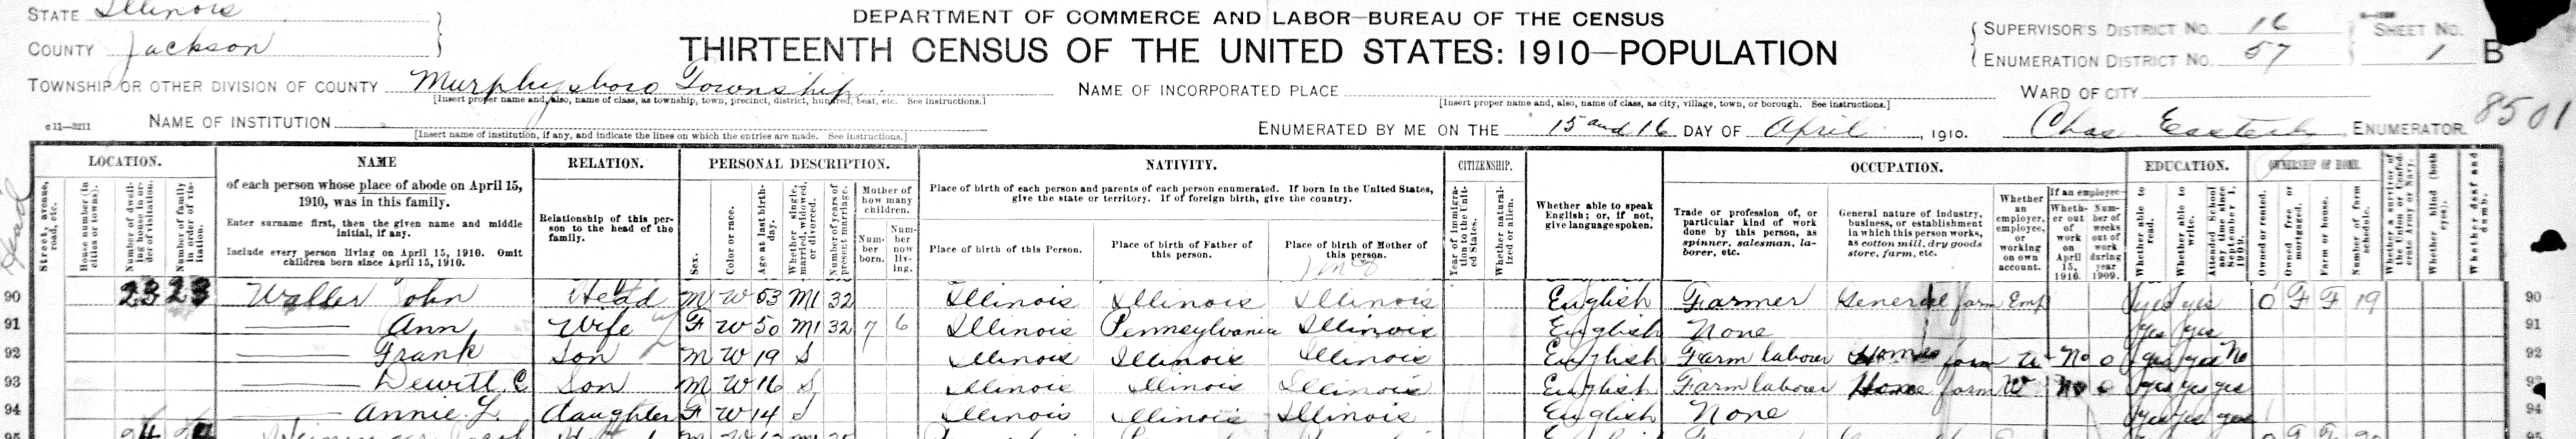 STATE Illinois
COUNTY Jackson
TOWNSHIP OR OTHER DIVISION OF COUNTY Murphysboro Township
[Insert proper name and, also, name of class, as township, town, precinct, district, hundred, beat, etc. See instructions.]
NAME OF INSTITUTION
[Insert name of institution, if any, and indicate the lines on which the entries are made. See instructions.]
DEPARTMENT OF COMMERCE AND LABOR—BUREAU OF THE CENSUS
THIRTEENTH CENSUS OF THE UNITED STATES: 1910—POPULATION
NAME OF INCORPORATED PLACE
[Insert proper name and, also, name of class, as city, village, town, or borough. See instructions.]
ENUMERATED BY ME ON THE 15 and 16 DAY OF April, 1910. Chas Easterly, ENUMERATOR.
SUPERVISOR'S DISTRICT NO. 16
ENUMERATION DISTRICT NO. 57
SHEET NO. 1 B
WARD OF CITY
8501
LOCATION.
Street, avenue, road, etc.
House number (in cities or towns).
Number of dwelling house in order of visitation.
Number of family in order of visitation.
NAME
of each person whose place of abode on April 15, 1910, was in this family.
Enter surname first, then the given name and middle initial, if any.
Include every person living on April 15, 1910. Omit children born since April 15, 1910.
RELATION.
Relationship of this person to the head of the family.
PERSONAL DESCRIPTION.
Sex.
Color or race.
Age at last birthday.
Whether single, married, widowed, or divorced.
Number of years of present marriage.
Mother of how many children.
Number born.
Number now living.
NATIVITY.
Place of birth of each person and parents of each person enumerated. If born in the United States, give the state or territory. If of foreign birth, give the country.
Place of birth of this Person.
Place of birth of Father of this person.
Place of birth of Mother of this person.
CITIZENSHIP.
Year of immigration to the United States.
Whether naturalized or alien.
Whether able to speak English; or, if not, give language spoken.
OCCUPATION.
Trade or profession of, or particular kind of work done by this person, as spinner, salesman, laborer, etc.
General nature of industry, business, or establishment in which this person works, as cotton mill, dry goods store, farm, etc.
Whether an employer, employee, or working on own account.
If an employee—
Whether out of work on April 15, 1910.
Number of weeks out of work during year 1909.
EDUCATION.
Whether able to read.
Whether able to write.
Attended school any time since September 1, 1909.
OWNERSHIP OF HOME.
Owned or rented.
Owned free or mortgaged.
Farm or house.
Number of farm schedule.
Whether a survivor of the Union or Confederate Army or Navy.
Whether blind (both eyes).
Whether deaf and dumb.
90 23 23 Waller John Head M W 53 M1 32 Illinois Illinois Illinois English Farmer General farm Emp yes yes O F F 19 90
91 —— Ann Wife F W 50 M1 32 7 6 Illinois Pennsylvania Illinois English None yes yes 91
92 —— Frank Son M W 19 S Illinois Illinois Illinois English Farm labour Home farm W No 0 yes yes No 92
93 —— Dewitt C Son M W 16 S Illinois Illinois Illinois English Farm labour Home farm W No 0 yes yes yes 93
94 —— Annie L. daughter F W 14 S Illinois Illinois Illinois English None yes yes yes 94